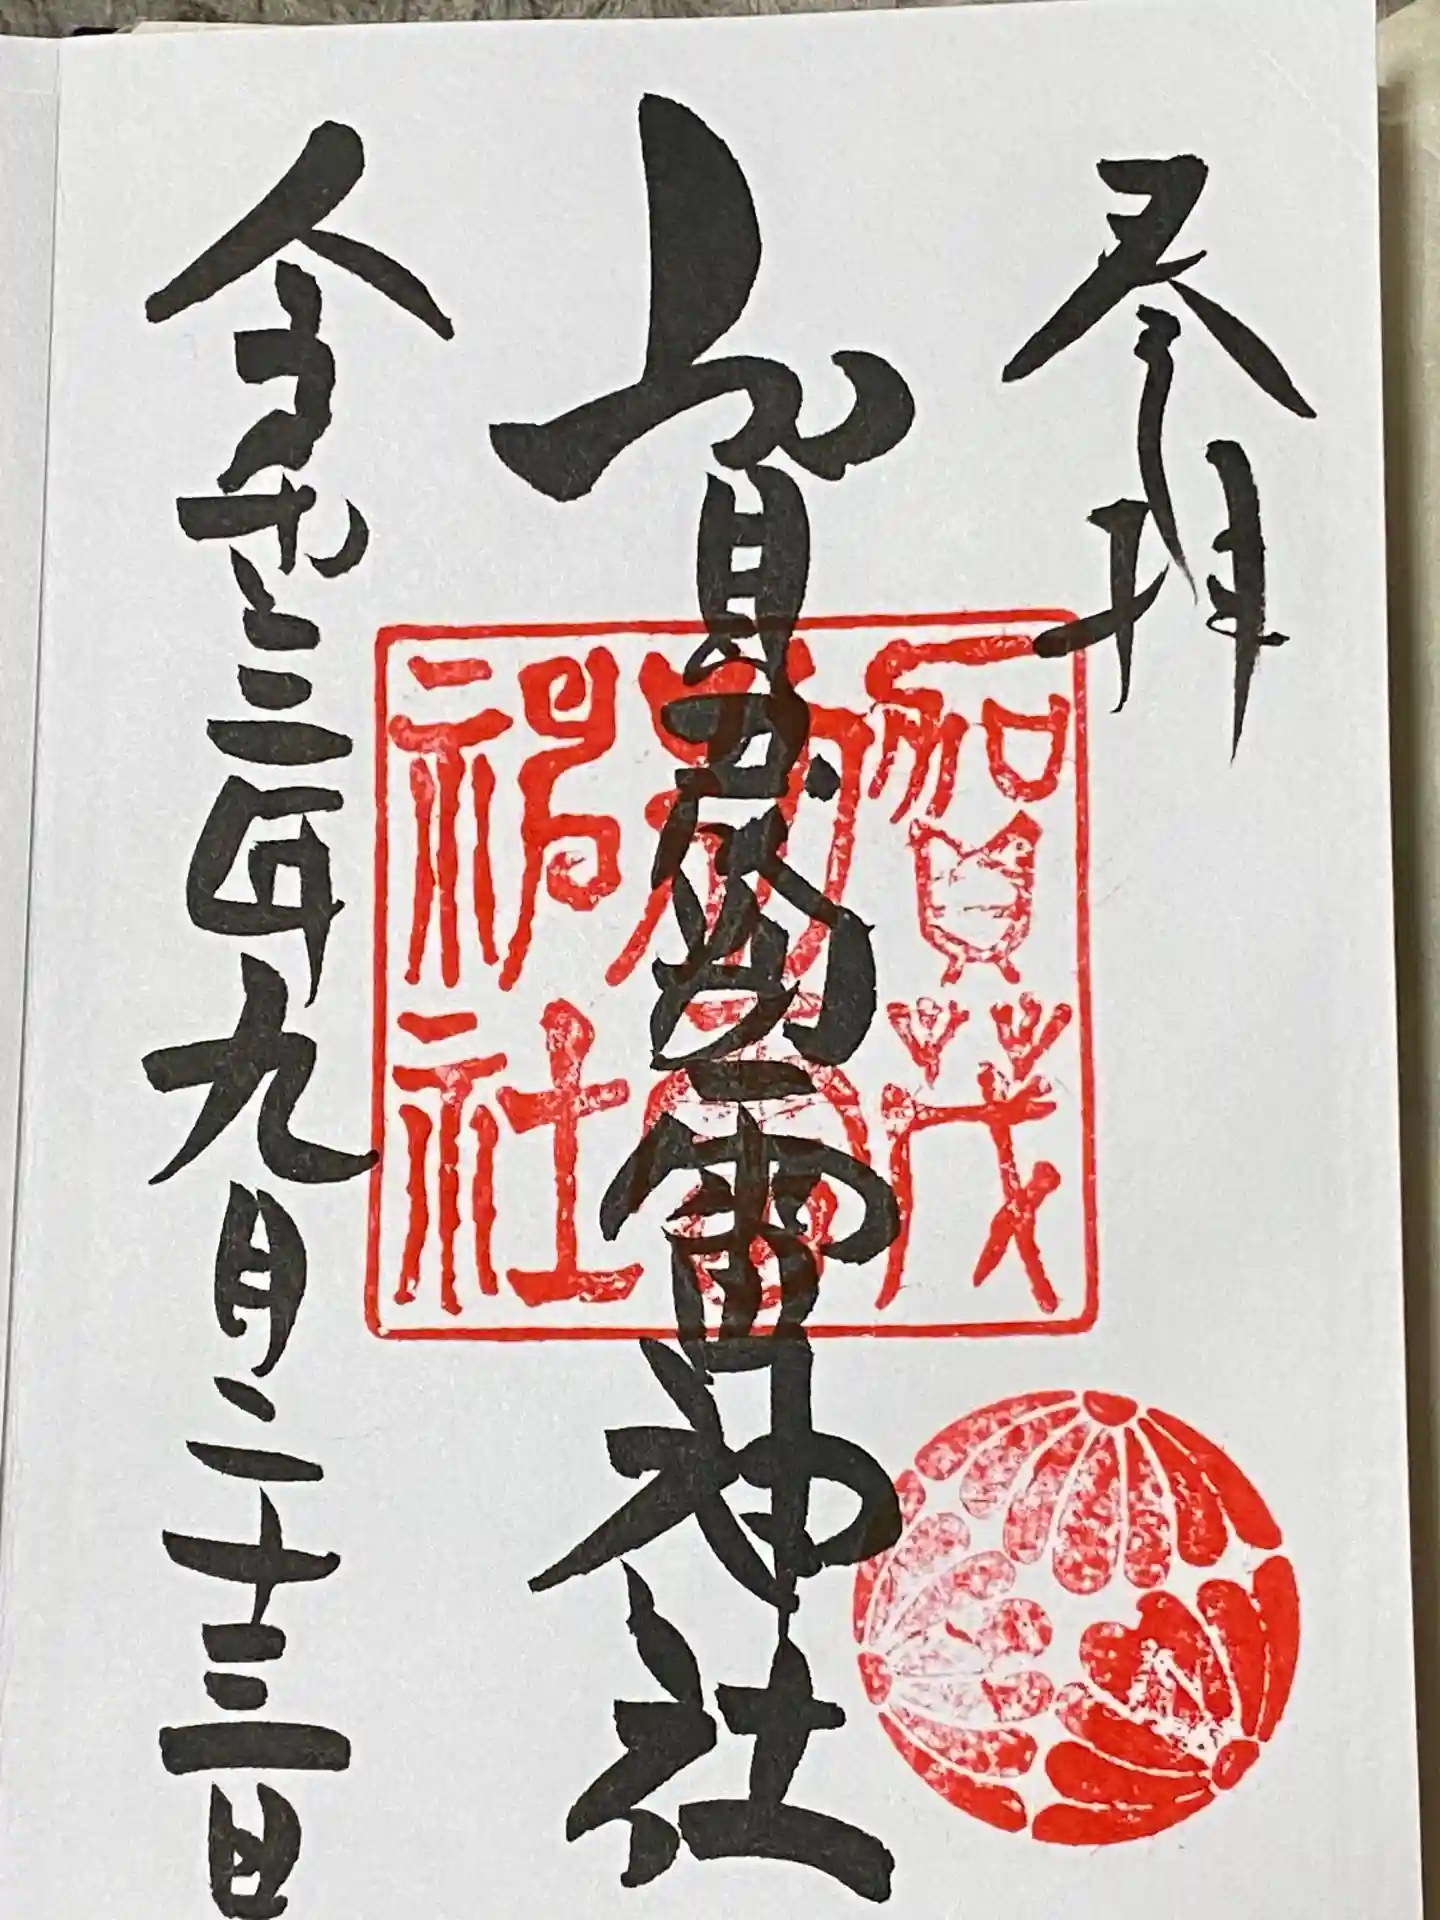 参拝
賀茂別雷神社
令和三年九月二十三日
賀茂
別雷
神社